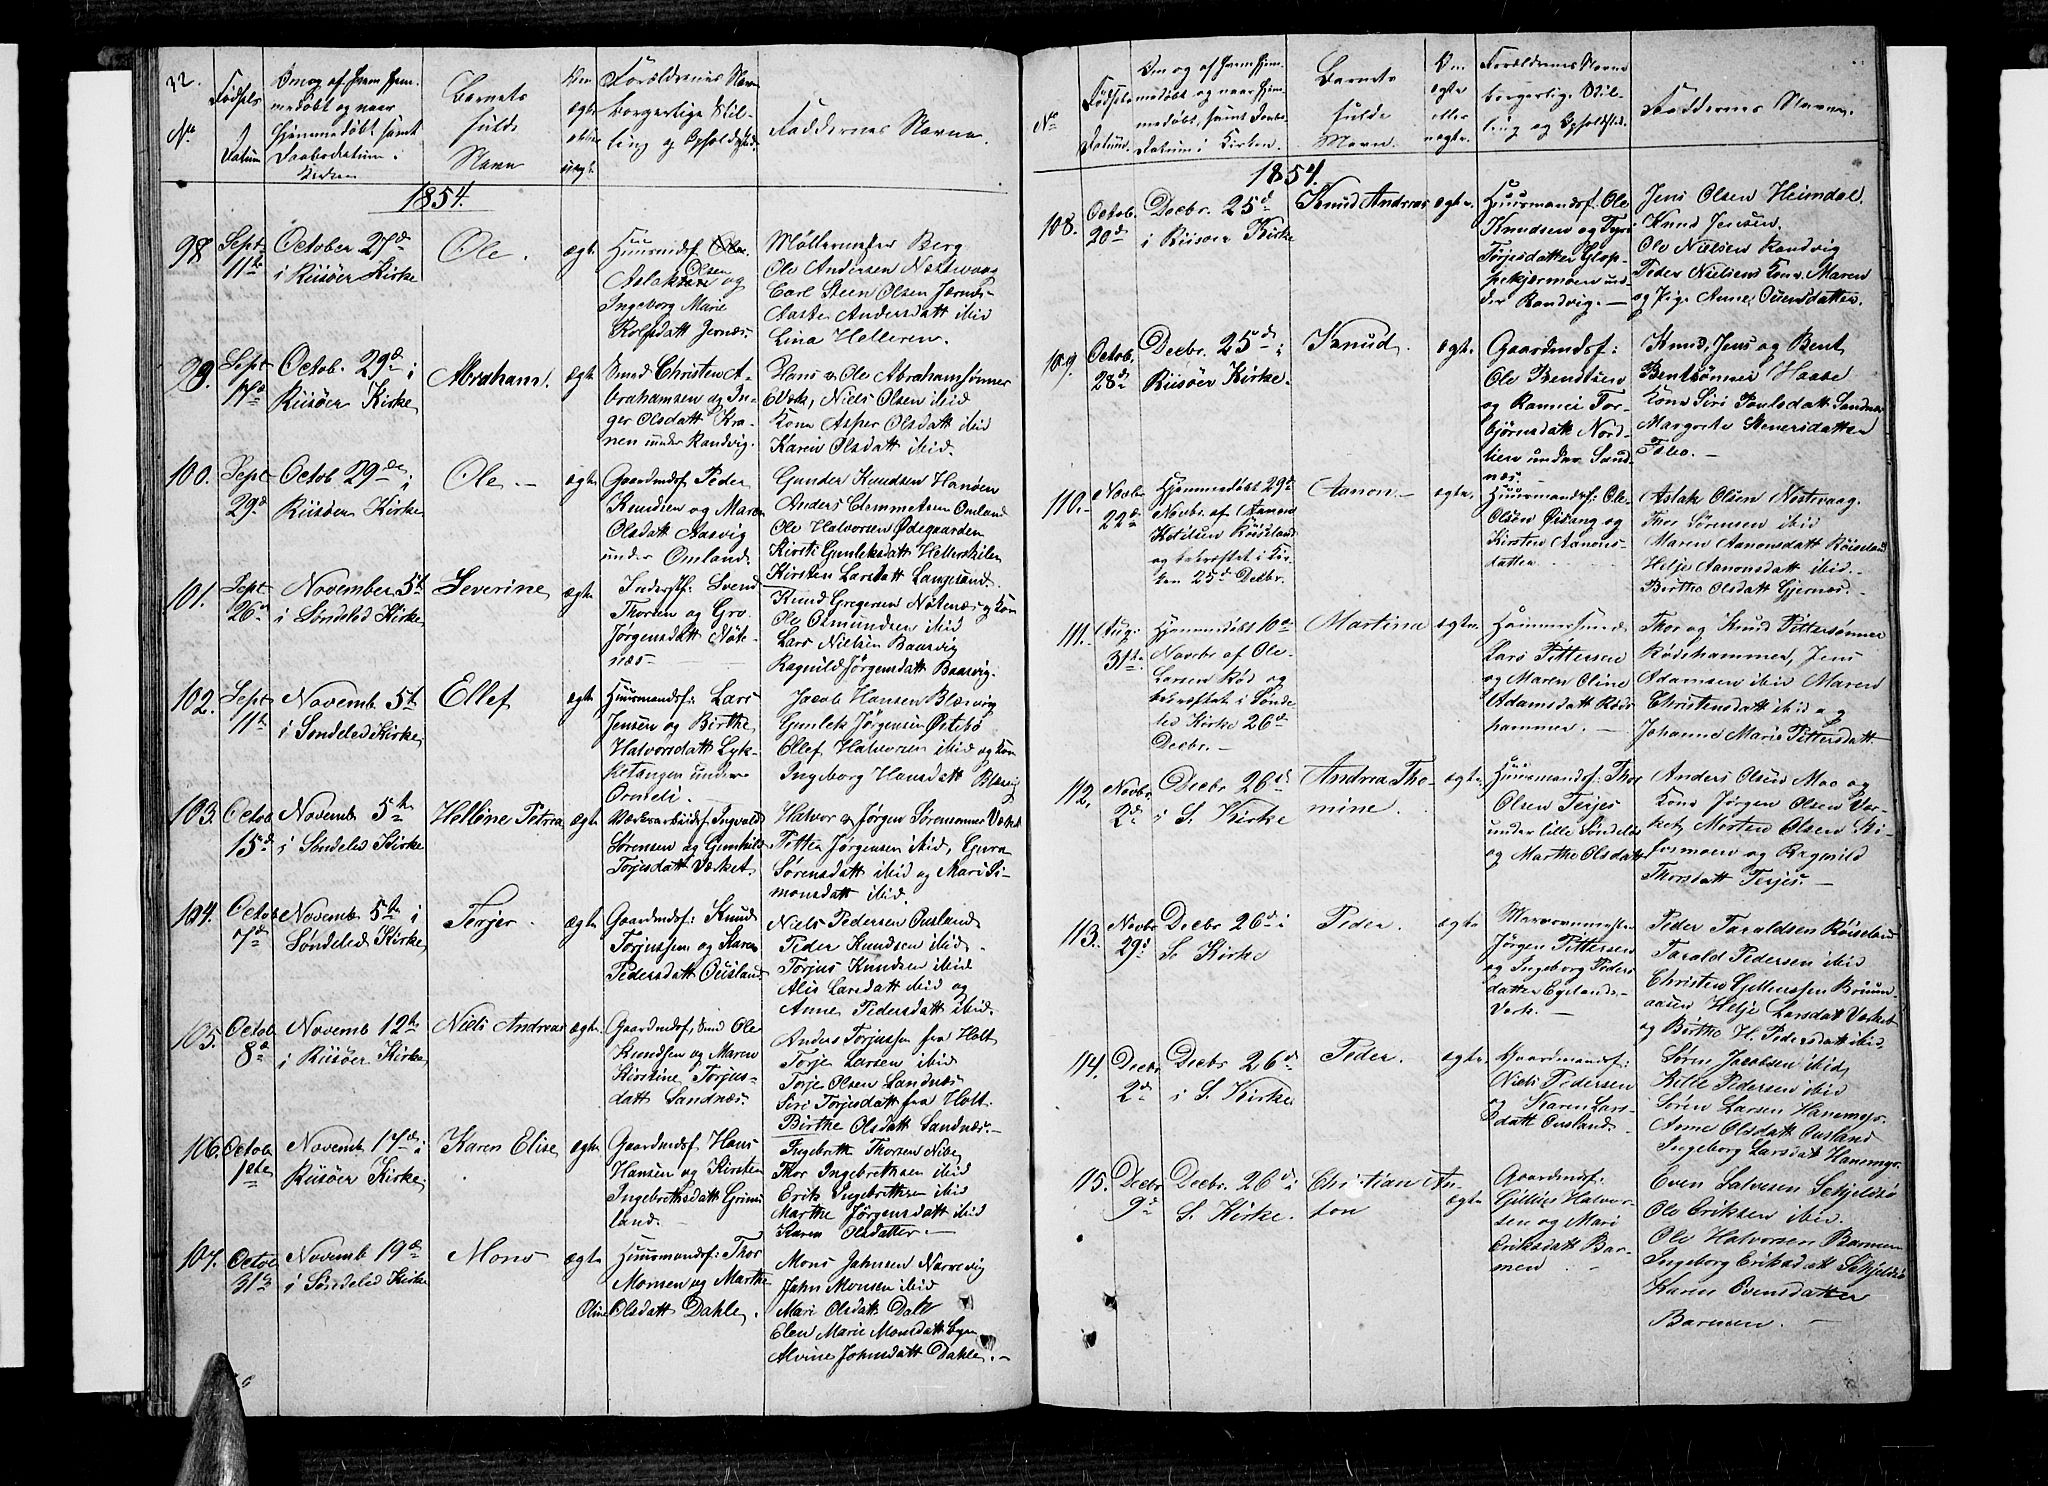 32.
No
Fødsels
Datum
Om og af hvem hjem-
medøbt og naar
Hjemmedøbt samt
Daabsdatum i
Kirken
Barnets
fulde
Navn
Om
ægte
eller
uægte
Forældrenes Navn
borgerlige Stil-
ling og Opholdsted.
Faddernes Navne.
1854.
98
Sept
11te
October 27de
i Riisøer Kirke
Ole.
ægte
Huusmdsf.
Aslaksen Olsen og
Ingeborg Marie
Rolfsdatt Jernæs.
Møllermester Berg
Ole Andersen Næstvaag
Carl Steen Olsen Jernæs
Aaste Andersdatt ibid
Lina Helleren.
99.
Sept
17de
Octob. 29de i
Riisøer Kirke
Abraham.
ægte
Smed Christen A-
brahamsen og In-
ger Olsdatt Kra-
nen under Randvig.
Hans & Ole Abrahamsønner
Niels Olsen ibid
Kone Asper Olsdatt ibid
Karen Olsdatt ibid.
100.
Sept
29de
Octob 29de i
Riisøer Kirke
Ole
ægte
Gaardmdsf Peder
Knudsen og Maren
Olsdatt Aasvig
under Omland.
Gunder Knudsen Hanøen
Anders Clemmetsen Omland
Ole Halvorsen Ødegaarden
Kirsti Gunleksdatt Hellerskilen
Kirsten Larsdatt Langsand.
101.
Sept
26de
November 5te
i Søndeled Kirke
Severine
ægte
Inderstf: Svend
Thorsen og Gro
Jørgensdatt Nøte-
næs
Knud Gregersen Nøtenæs og Kone
Ole Osmundsen ibid
Lars Nielsen Baasvig
Ragnild Jørgensdatt Baasvig.
102.
Sept
11te
Novemb 5te
i Søndeled Kirke
Ellef
ægte
Huusmandsf: Lars
Jensen og Birthe
Halvorsdatt Lyk-
ketangen under
Jacob Hansen Blæsvig
Gunlek Jørgensen Østebø
Ellef Halvorsen ibid og Kone
Ingeborg Hansdatt Blæsvig
103.
Octob
15de
Novemb 5te
i Søndeled Kirke
Helléne Petrea
ægte
Værksarbeidsf. Ingvald
Sørensen og Gunhild
Torjesdatt Værket
Halvor og Jørgen Sørensønner Værket
Petter Jørgensen ibid, Gura
Sørensdatt ibid og Mari Si-
monsdatt ibid.
104.
Octob
7de
Novemb 5te i
Søndeled Kirke
Terjer
ægte
Gaardmdsf: Knud
Torjussen og Karen
Pedersdatt Ousland
Niels Pedersen Ousland
Peder Knudsen ibid
Torjus Knudsen ibid
Alis Larsdatt ibid og
Anne Pedersdatt ibid.
105.
Octob
8de
Novemb 12te
i Riisøer Kirke
Niels Andreas
ægte
Gaardmdsf, Smd Ole
Knudsen og Maren
Kirstine Torjus-
datt Sandnæs.
Anders Torjussen fra Holt
Torje Larsen ibid
Torje Olsen Sandnæs
Siri Torjesdatt fra Holt.
Birthe Olsdatt Sandnæs.
106.
Octob
1ste
Novemb 17de i
Riisøer Kirke
Karen Elise
ægte
Gaardmdsf. Hans
Hansen og Kirsten
Ingebrethsdatt Grims
land.
Ingebreth Thorsen Nibe
Thor Ingebrethsen ibid
Erik Ingebrethsen ibid
Marthe Jørgensdatt ibid
Karen Olsdatter.
107.
Octob
31te
Novemb 19de
i Søndeled Kirke
Mons
ægte
Huusmandsf: Thor
Monsen og Marthe
Oline Olsdatt Dahle.
Mons Johnsen Narrevig
John Monsen ibid
Mari Olsdatt Dale
Elen Marie Monsdatt
Alvine Johnsdatt Dahle.
No
Fødsels
Datum.
Om og af hvem hjem-
medøbt og naar hjem-
medøbt, samt Daabs-
Datum i Kirken.
Barnets
fulde
Navn.
Om
ægte
eller
uægte
Forældrenes Navne
borgerlige Stil-
ling og Opholdsted.
Faddernes Navne.
1854.
108.
Octob.
20de
Decbr. 25de
i Riisøer Kirke
Knud Andreas
ægte.
Huusmandsf. Ole
Knudsen og Tyri
Torjesdatter Glop-
pekjærmoen un-
der Randvig.
Jens Olsen Heimdal.
Knud Jensen.
Ole Nielsen Randvig
Peder Nielsens Kone Maren
og Pige Anne Ovensdatter.
109.
Octob.
28de
Decbr. 25de i
Riisøer Kirke.
Knud.
ægte.
Gaardmdsf:
Ole Bendtsen
og Rannei Tor-
bjørnsdatt Nord-
lien under Sand-
næs.
Knud, Jens og Bent
Bentsønner
Kone Siri Poulsdatt Sandnæs
Margrete Stenersdatter
110.
Novbr
22de
Hjemmedøbt 29te
Novbr. af Aanon
Ketilsen Røiseland
og bekræftet i Kir-
ken 25de Decbr.
Aanon.
ægte.
Huusmandsf: Ole
Olsen Øisang og
Kirsten Aanons-
datter
Aslak Olsen Næstvaag.
Thor Sørensen ibid
Maren Aanonsdatt Røiseland
Helje Aanonsdatt ibid.
Birthe Olsdatt Gjernæs.
111.
Aug.
31te
Hjemmedøbt 10de
Novebr af Ole
Larsen Rød og
bekræftet i Sønde-
led Kirke 26de
Decbr.
Martine
ægte.
Lars Pettersen
og Maren Oline
Adamsdatt Røds
hammer.
Thor og Knud Pettersønner
Rødshammer, Jens
Adamsen ibid Maren
Christensdatt ibid og
Johanne Marie Pettersdatt.
112.
Novbr
2de
Decbr 26de
i S. Kirke
Andrea Tho-
mine.
ægte.
Huusmandsf: Thor
Olsen Terjes
under lille Søndeled
og Marthe Olsdatt
Anders Olsen Moe og
Kone Jørgen Olsen Vær-
ket, Morten Olsen
og Ragnild
Thorsdatt Terjes.
113.
Novbr
29de
Decbr 26de i
S. Kirke
Peder.
ægte
Jørgen Pettersen
og Ingeborg Peders
datter Egelands-
Verk.
Peder Taraldsen Røiseland
Tarald Pedersen ibid
Christen Gullerssen Bruun-
aasen Helje Larsdatt Værket
og Birthe H. Pedersdatt ibid.
114.
Decbr
2de
Decbr. 26de
i S. Kirke
Peder.
ægte.
Gaardmandsf:
Niels Pedersen
og Karen Lars-
datt Ousland
Søren Jacobsen ibid
Kille Pedersen ibid
Søren Larsen Hanemyr.
Anne Olsdatt Ousland
Ingeborg Larsdatt Hanemyr.
115.
Decbr
9de
Decbr. 26de i
S. Kirke.
Christian An-
ton
ægte.
Gaardmdsf:
Gullies Halvor-
sen og Mari
Eriksdatt Bar-
men
Even Salvesen Skjeldsø
Ole Eriksen ibid.
Ole Halvorsen Barmen
Ingeborg Eriksdatt Skjeldsø
Karen Evensdatter
Barmen.